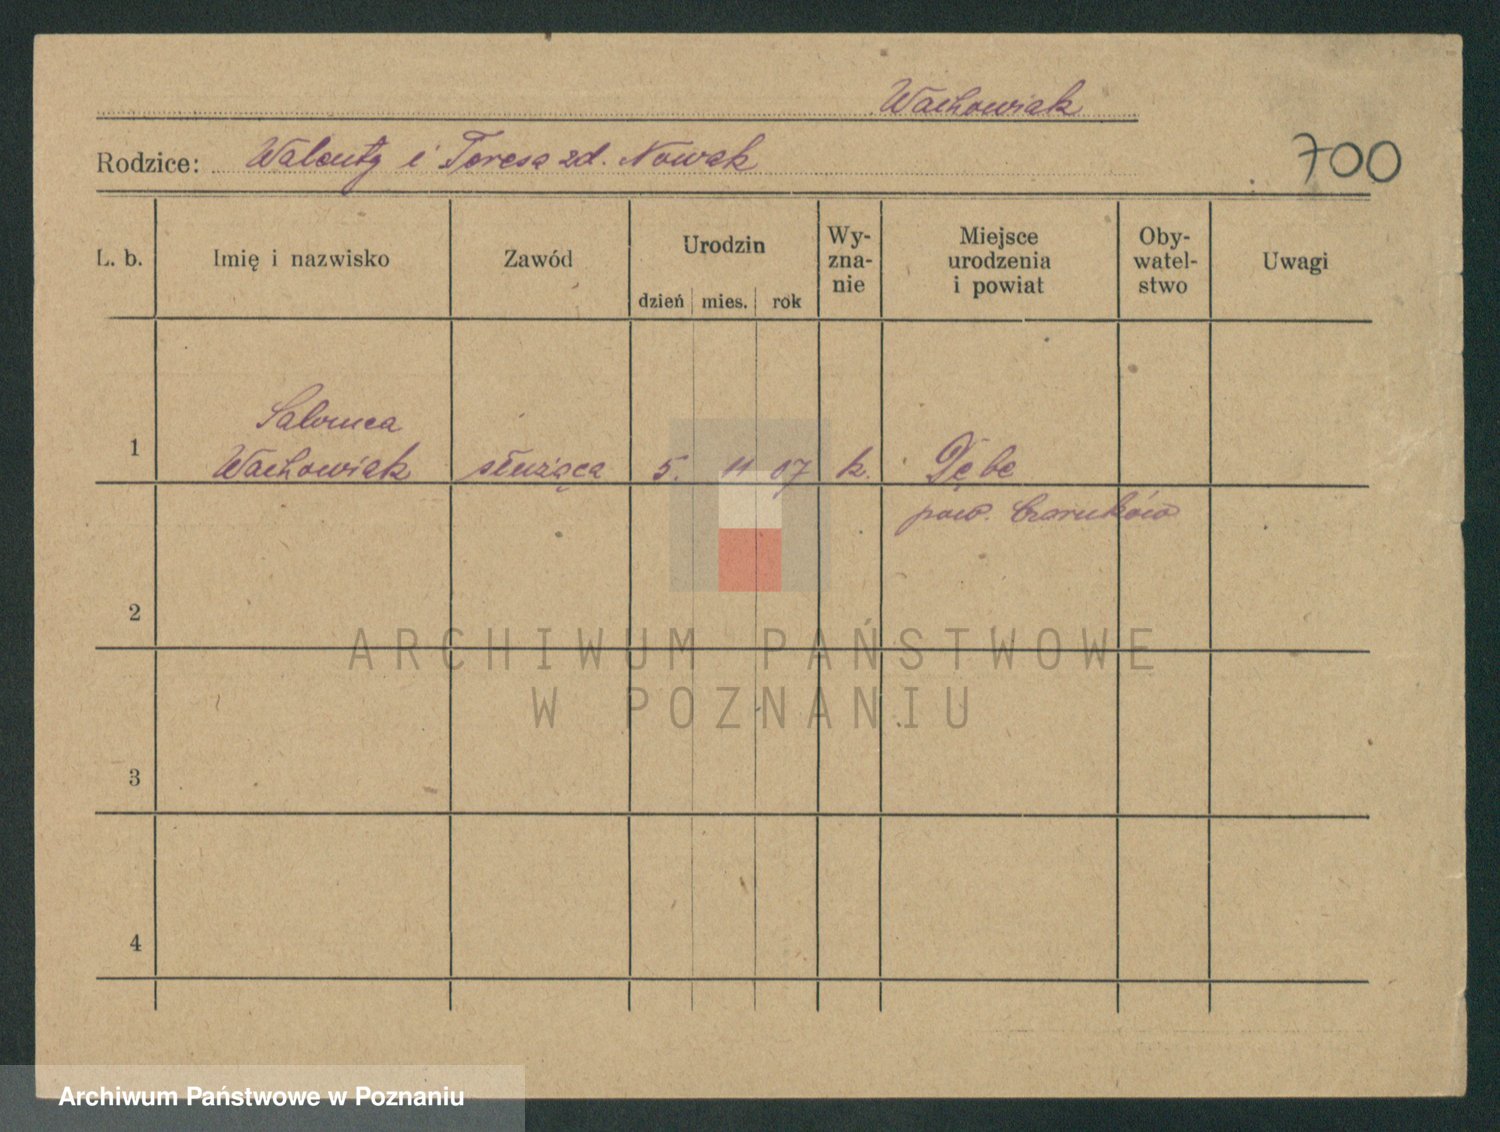 Wachowiak
Rodzice: Walenty i Teresa zd. Nowak
700
L. b. Imię i nazwisko Zawód Urodzin dzień mies. rok Wy-zna-nie Miejsce urodzenia i powiat Oby-watel-stwo Uwagi
Salomea
1 Wachowiak służąca 5. 11 07 k. Dębe
pow. Czarnków
2
ARCHIWUM PAŃSTWOWE
W POZNANIU
3
4
Archiwum Państwowe w Poznaniu